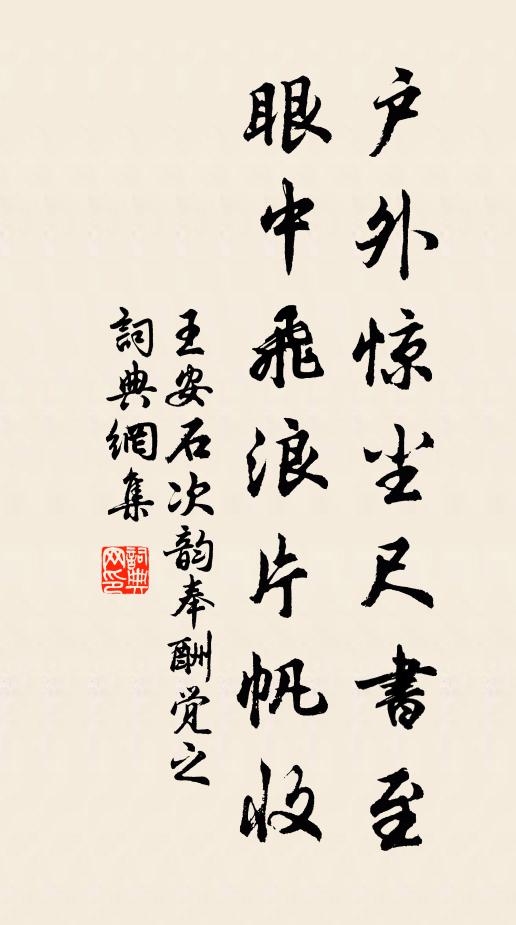 户外惊尘尺书至
眼中飛浪片帆收
王安石次韵奉酬觉之
詞典網集
詞典网印